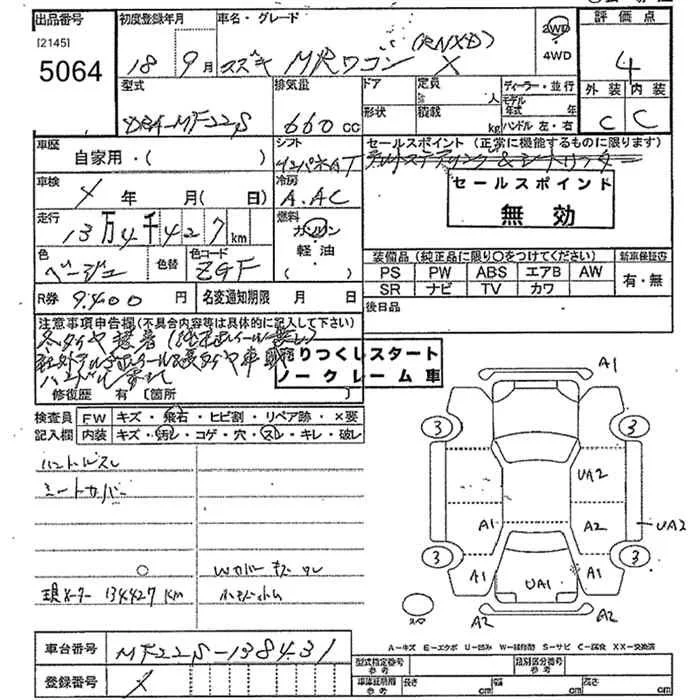 出品番号
[2145]
5064
初度登録年月
18 9月
車名・グレード
スズキ MRワゴン (RNXB) X
2WD
・
4WD
評価点
4
外装 内装
C C
型式
DBA-MF22S
排気量
660 cc
ドア
形状
定員
人
積載
kg
ディーラー・並行
モデル
年式 年
ハンドル 左・右
車歴
自家用・( )
シフト
インパネAT
セールスポイント (正常に機能するものに限ります)
セールスポイント
無効
車検
年 月( 日)
冷房
A.AC
走行
13万4千427km
燃料
ガソリン
軽油
( )
色
ベージュ
色替
色コード
ZGF
装備品 (純正品に限り○をつけてください)
PS PW ABS エアB AW
SR ナビ TV カワ
新車保証書
有・無
R券 9,400 円
名変通知期限 月 日
後日品
注意事項申告欄 (不具合内容等は具体的に記入して下さい)
売りつくしスタート
ノークレーム車
修復歴 有 〔箇所 〕
検査員
記入欄
FW キズ・飛石・ヒビ割・リペア跡・×要
内装 キズ・汚レ・コゲ・穴・スレ・キレ・破レ
ハンドルスレ
シートカバー
現メーター 134427 KM
Wカバーキズ ワレ
A1
3 3
UA2
A1 A2
UA2
3 3
A1 UA1 A1
A2 A2
A-キズ E-エクボ U-凹み W-補修跡 S-サビ C-腐食 XX-交換済
車台番号
MF22S-138431
登録番号
型式指定番号
参考
類別区分番号
参考
車庫証明用
参考
長さ cm
幅 cm
高さ cm